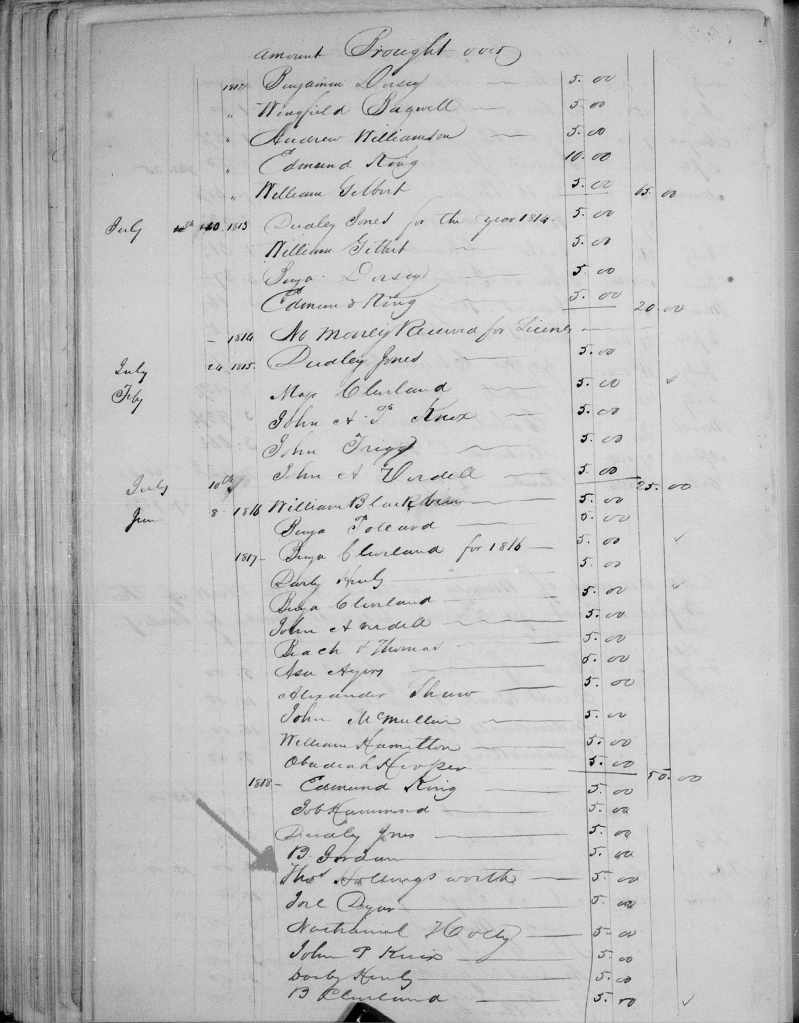 amount Brought over
1812 Benjamin Dorsey 5.00
" Wingfield Bagwell 5.00
" Andrew Williamson 5.00
" Edmund King 10.00
" William Gilbert 5.00 65.00
July 1813 Dudley Jones for the year 1814 5.00
William Gilbert 5.00
Benja Dorsey 5.00
Edmund King 5.00 20.00
1814 No Money Received for License
July 24 1815 Dudley Jones 5.00
Feby Cleveland 5.00 ✓
John Knox 5.00
John Trigg 5.00
July 10th John A Verdell 5.00 25.00
June 8 1816 William Blackburn 5.00
Benja 5.00
1817 Benja Cleveland for 1816 5.00 ✓
Darby Henly 5.00
Benja Cleveland 5.00 ✓
John A Verdell 5.00
Beach & Thomas 5.00
Asa Ayers 5.00
Alexander Shaw 5.00
John McMullan 5.00
William Hamilton 5.00
Obadiah Hooper 5.00 50.00
1818 Edmund King 5.00
Job Hammond 5.00
Dudley Jones 5.00
B. Jordan 5.00
Thos Hollingsworth 5.00
Joel Dyar 5.00
Nathaniel 5.00
John P Knox 5.00
Darby Henly 5.00
B Cleveland 5.00 ✓